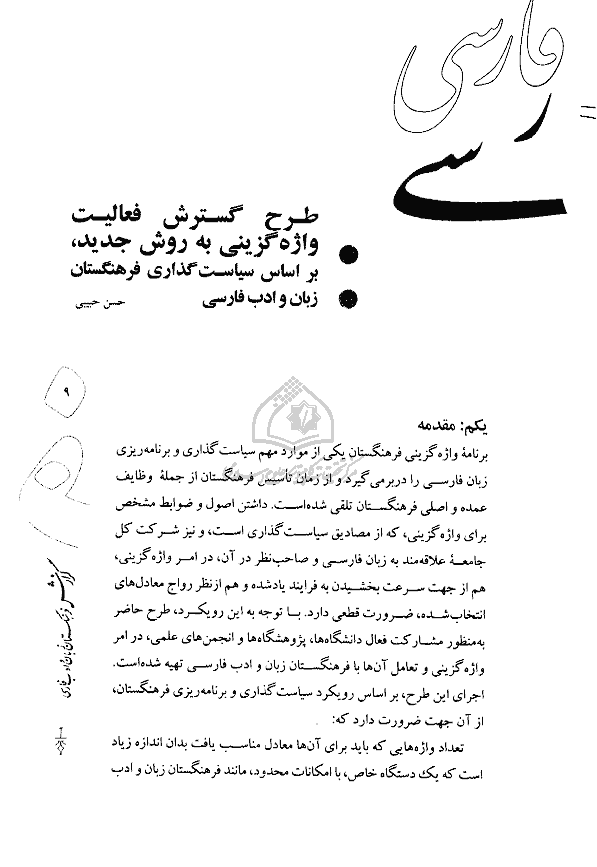 فارسی
رسی
طرح گسترش فعالیت
واژه‌گزینی به روش جدید،
بر اساس سیاست‌گذاری فرهنگستان
زبان و ادب فارسی
حسن حبیبی
۹
یکم: مقدمه
برنامهٔ واژه‌گزینی فرهنگستان یکی از موارد مهم سیاست‌گذاری و برنامه‌ریزی
زبان فارسی را دربرمی‌گیرد و از زمان تأسیس فرهنگستان از جملهٔ وظایف
عمده و اصلی فرهنگستان تلقی شده‌است. داشتن اصول و ضوابط مشخص
برای واژه‌گزینی، که از مصادیق سیاست‌گذاری است، و نیز شرکت کل
جامعهٔ علاقه‌مند به زبان فارسی و صاحب‌نظر در آن، در امر واژه‌گزینی،
هم از جهت سرعت بخشیدن به فرایند یادشده و هم ازنظر رواج معادل‌های
انتخاب‌شده، ضرورت قطعی دارد. با توجه به این رویکرد، طرح حاضر
به‌منظور مشارکت فعال دانشگاه‌ها، پژوهشگاه‌ها و انجمن‌های علمی، در امر
واژه‌گزینی و تعامل آن‌ها با فرهنگستان زبان و ادب فارسی تهیه شده‌است.
اجرای این طرح، بر اساس رویکرد سیاست‌گذاری و برنامه‌ریزی فرهنگستان،
از آن جهت ضرورت دارد که:
تعداد واژه‌هایی که باید برای آن‌ها معادل مناسب یافت بدان اندازه زیاد
است که یک دستگاه خاص، با امکانات محدود، مانند فرهنگستان زبان و ادب